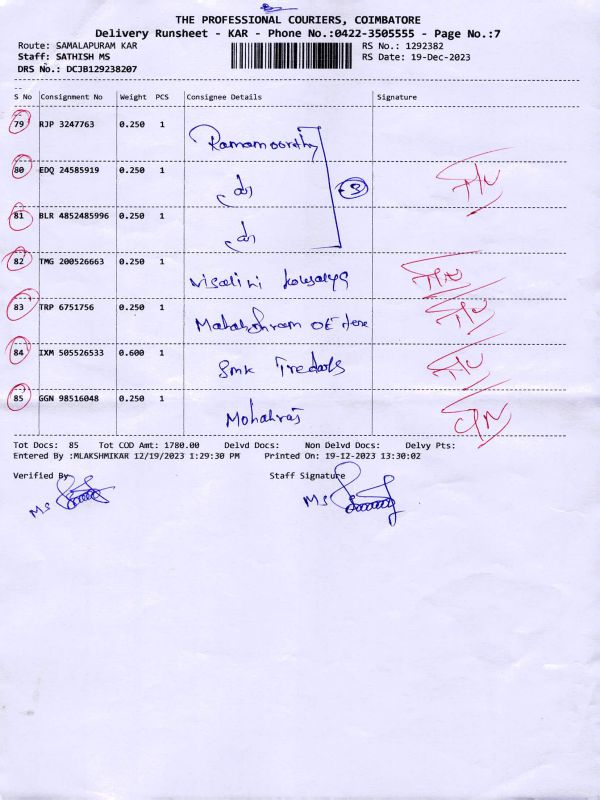 THE PROFESSIONAL COURIERS, COIMBATORE
Delivery Runsheet - KAR - Phone No.:0422-3505555 - Page No.:7
Route: SAMALAPURAM KAR RS No.: 1292382
Staff: SATHISH MS RS Date: 19-Dec-2023
DRS No.: DCJB129238207
S No Consignment No Weight PCS Consignee Details Signature
79 RJP 3247763 0.250 1 Ramamoorthy
80 EDQ 24585919 0.250 1
3
81 BLR 4852485996 0.250 1
82 TMG 200526663 0.250 1
83 TRP 6751756 0.250 1
84 IXM 505526533 0.600 1 Smk Tredars
85 GGN 98516048 0.250 1 Mohanraj
Tot Docs: 85 Tot COD Amt: 1780.00 Delvd Docs: Non Delvd Docs: Delvy Pts:
Entered By :MLAKSHMIKAR 12/19/2023 1:29:30 PM Printed On: 19-12-2023 13:30:02
Verified By Staff Signature
MS MS